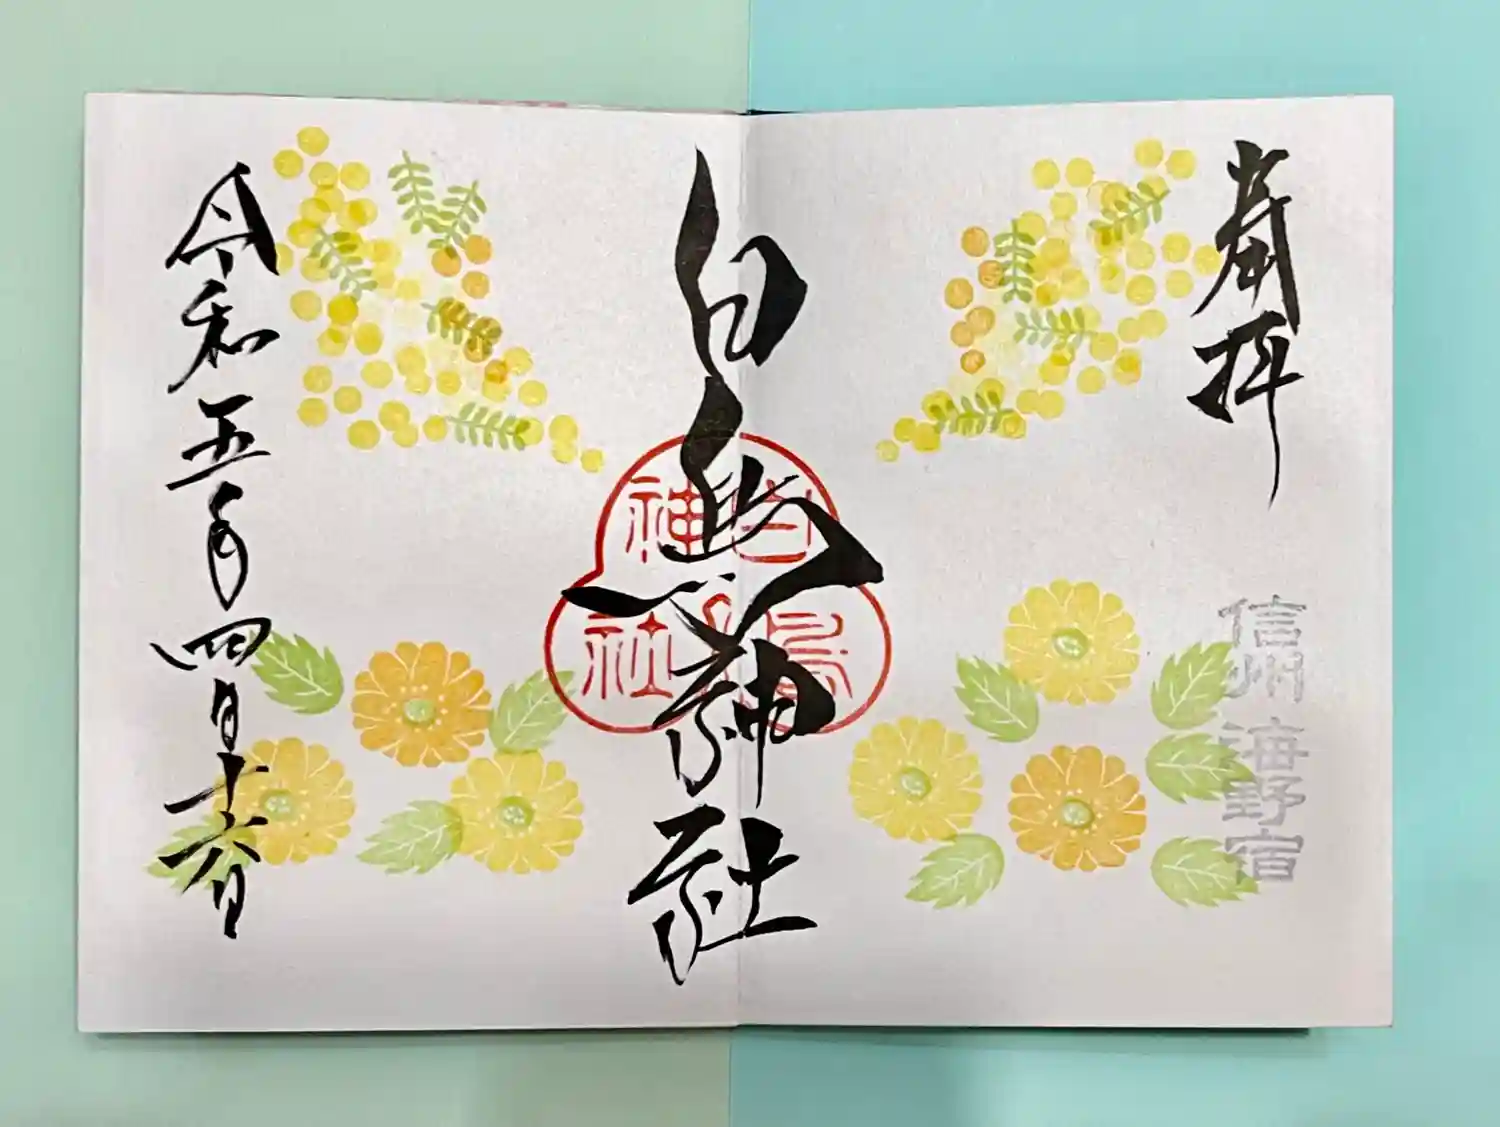 奉拝
信州 海野宿
白鳥神社
白鳥神社
令和五年四月十六日